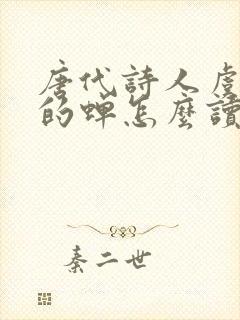 唐代詩人虞
的蟬怎麼讀
秦二世